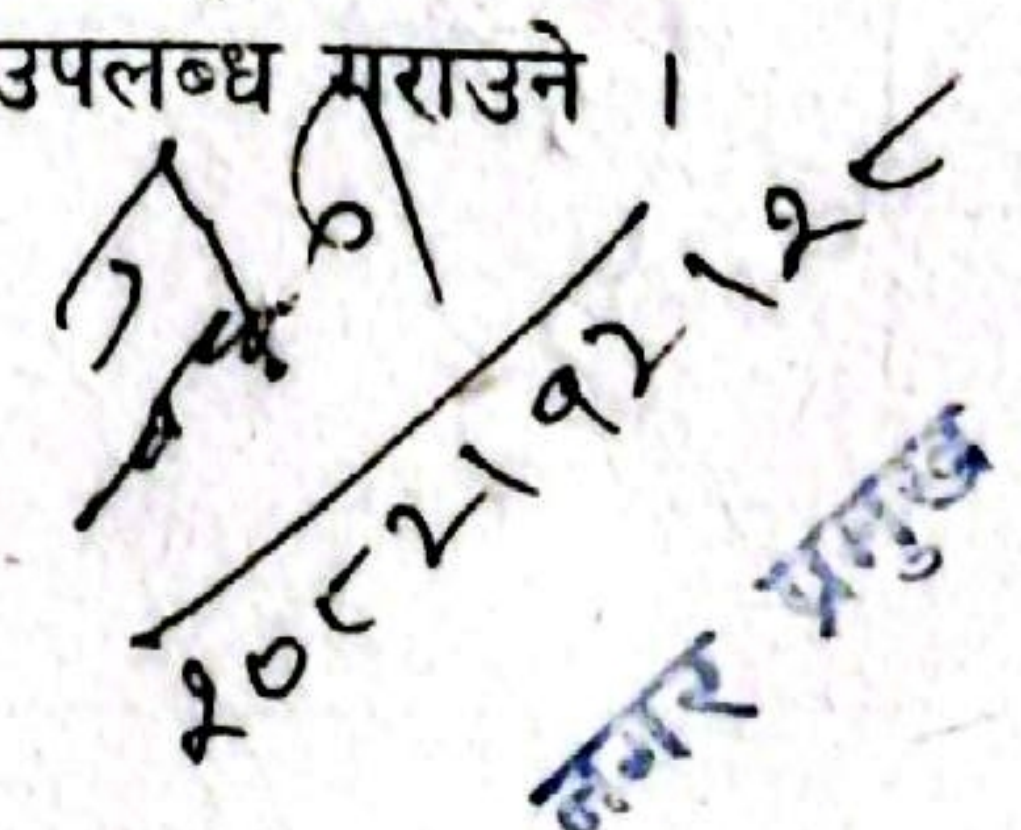 उपलब्ध गराउने ।
२०८२।१२।२८
नगर प्रमुख